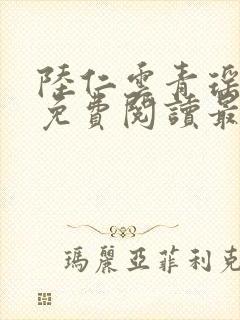 陸仁雲青瑶
免費閱讀最
瑪麗亞菲利克